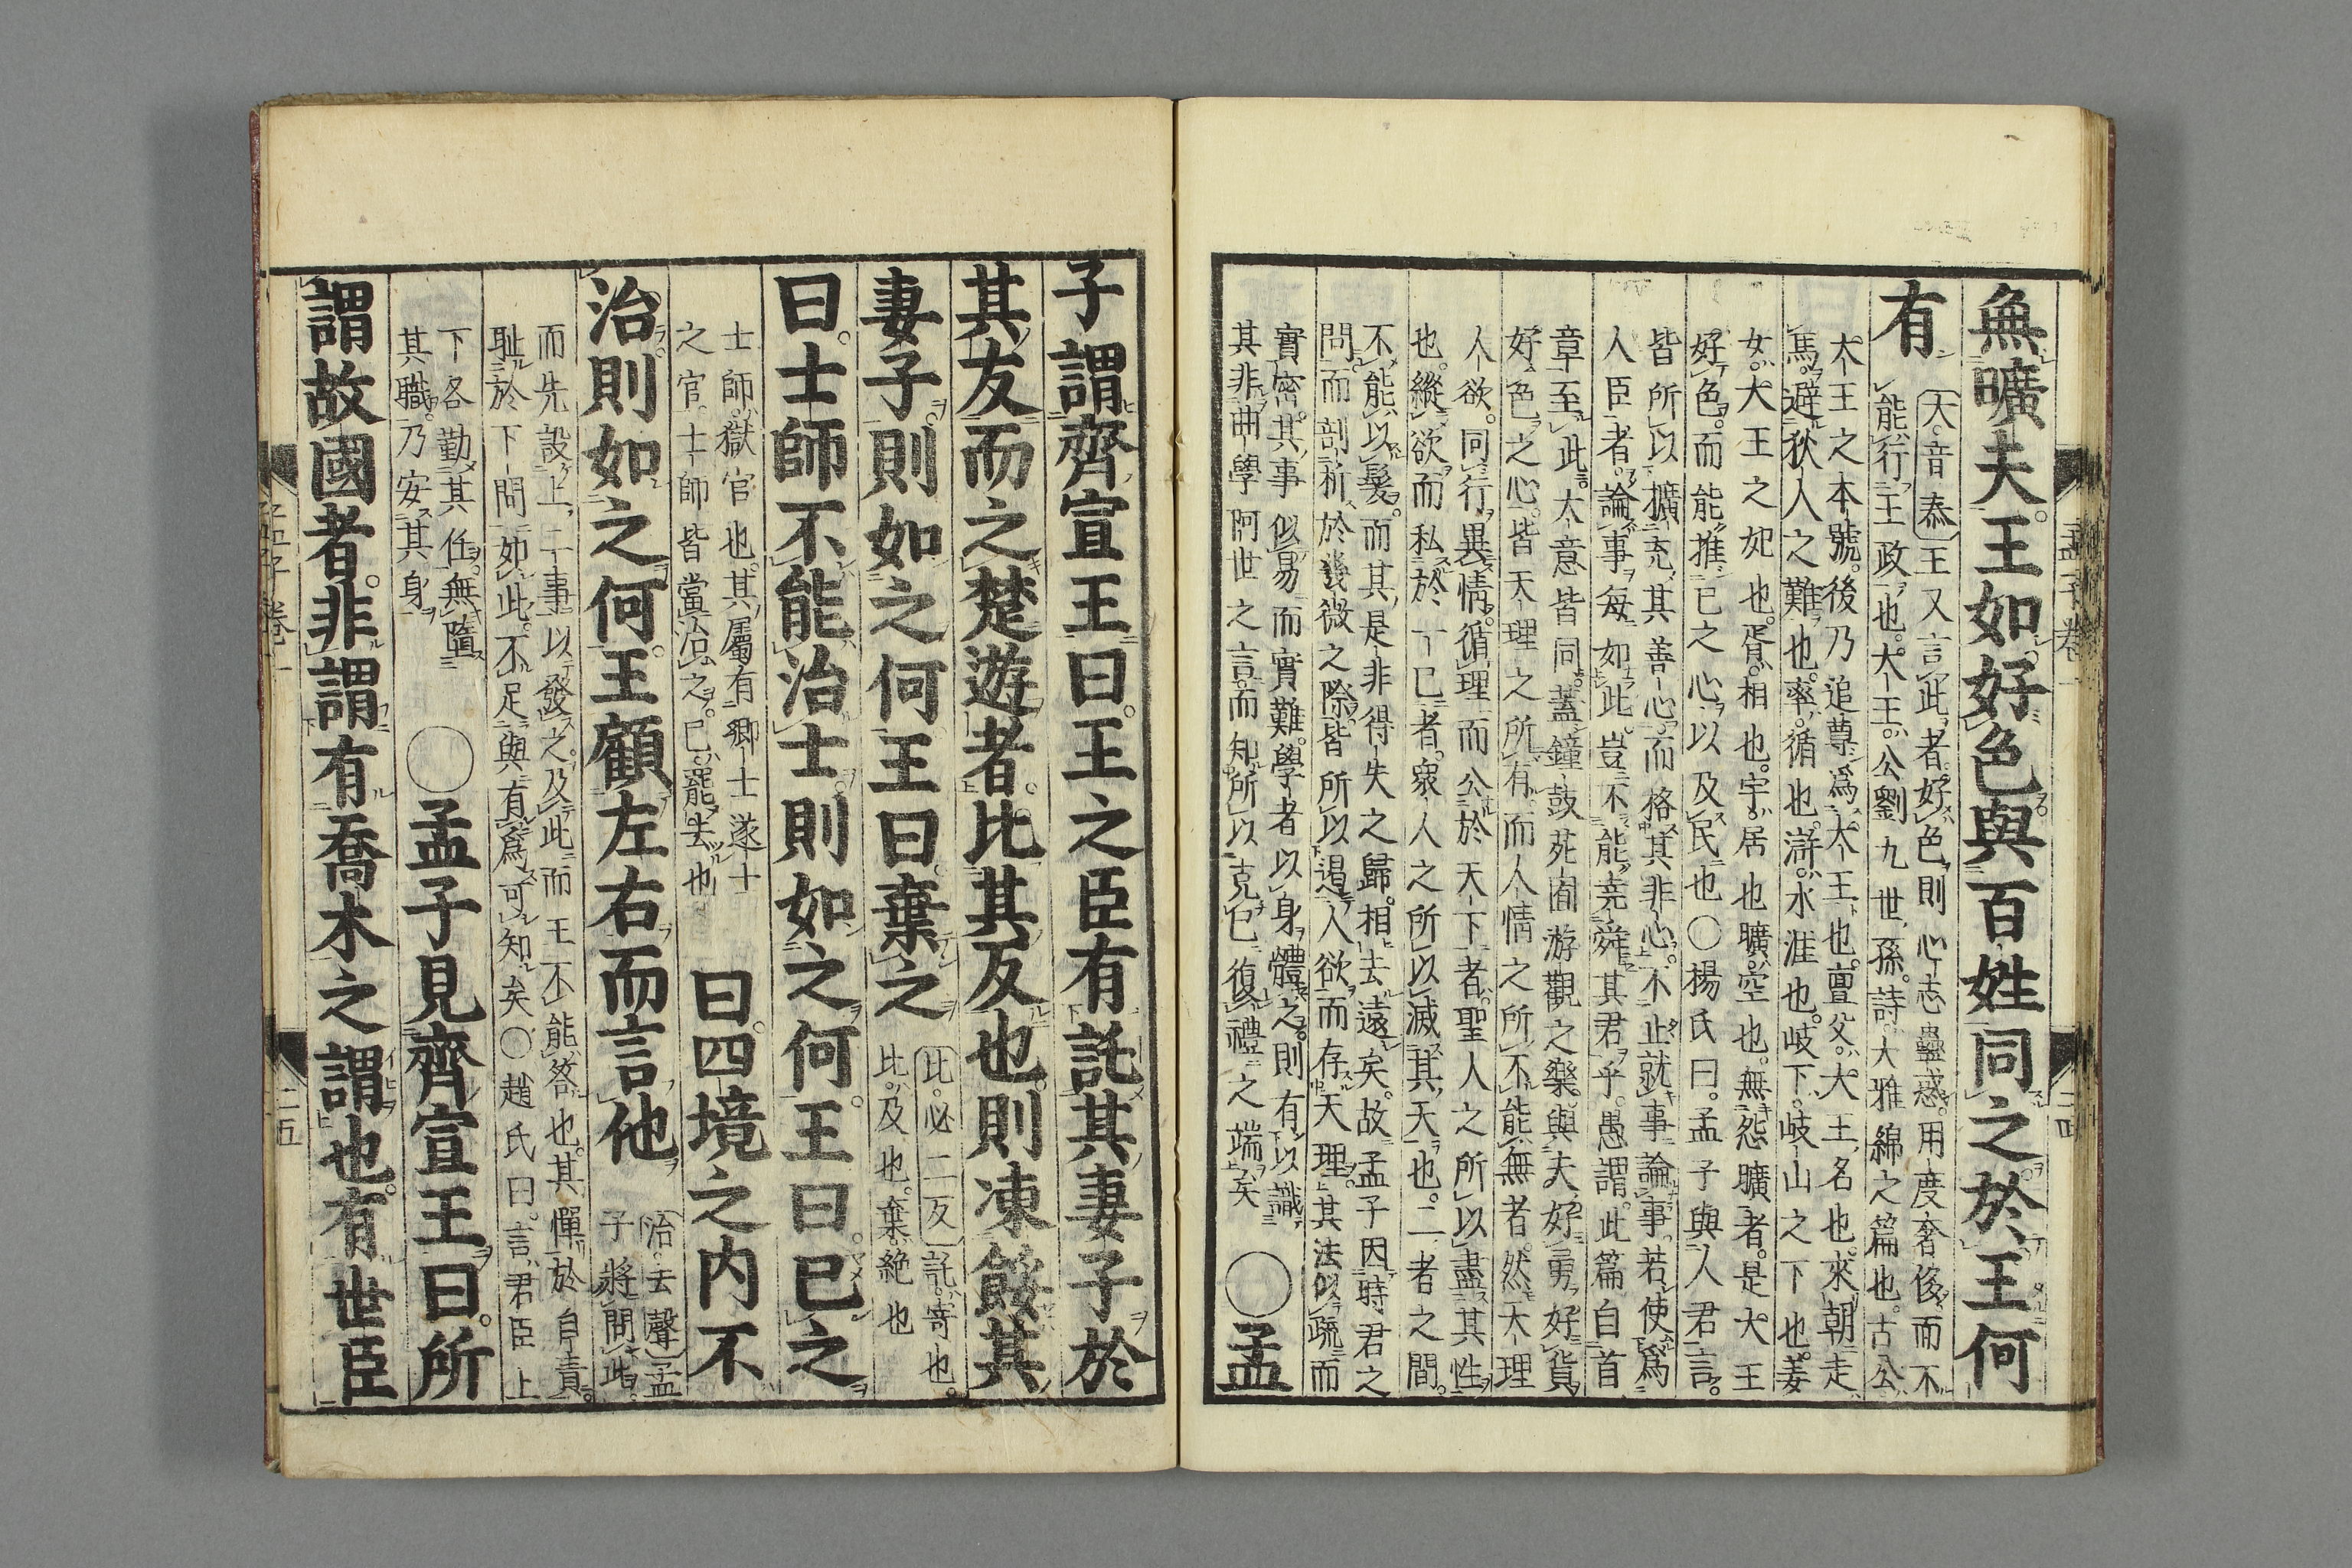 無曠夫。王如好色。與百姓同之。於王何
有
〔大。音泰。〕王又言此者。好色。則心志蠱惑。用度奢侈。而不
能行王政也。大王。公劉九世孫。詩大雅綿之篇也。古公
大王之本號。後乃追尊爲大王也。亶父。大王名也。來朝走
馬。避狄人之難也。率。循也。滸。水涯也。岐下。岐山之下也。姜
女。大王之妃也。胥。相也。宇。居也。曠。空也。無怨曠者。是大王
好色。而能推己之心。以及民也○楊氏曰。孟子與人君言。
皆所以擴充其善心。而格其非心。不止就事論事。若使爲
人臣者。論事每如此。豈不能堯舜其君乎。愚謂。此篇自首
章至此。大意皆同。蓋鐘鼓苑囿游觀之樂。與夫好勇好貨
好色之心。皆天理之所有。而人情之所不能無者。然天理
人欲。同行異情。循理而公於天下者。聖人之所以盡其性
也。縱欲而私於一己者。衆人之所以滅其天也。二者之間。
不能以髮。而其是非得失之歸。相去遠矣。故孟子因時君之
問。而剖析於幾微之際。皆所以遏人欲而存天理。其法似疏而
實密。其事似易而實難。學者以身體之。則有以識
其非曲學阿世之言。而知所以克己復禮之端矣
○孟
子謂齊宣王曰。王之臣有託其妻子於
其友而之楚遊者。比其反也。則凍餒其
妻子。則如之何。王曰。棄之
〔比。必二反〕託。寄也。
比。及也。棄。絶也
曰。士師不能治士。則如之何。王曰。已之
士師。獄官也。其屬有鄉士遂士
之官。士師皆當治之。已。罷去也
曰。四境之内不
治。則如之何。王顧左右而言他
〔治。去聲〕孟
子將問此。
而先設上二事。以發之。及此而王不能答也。其憚於自責。
耻於下問如此。不足與有爲可知矣○趙氏曰。言君臣上
下各勤其任。無墮
其職。乃安其身
○孟子見齊宣王曰。所
謂故國者。非謂有喬木之謂也。有世臣
孟子卷一
二四
孟子卷一
二五